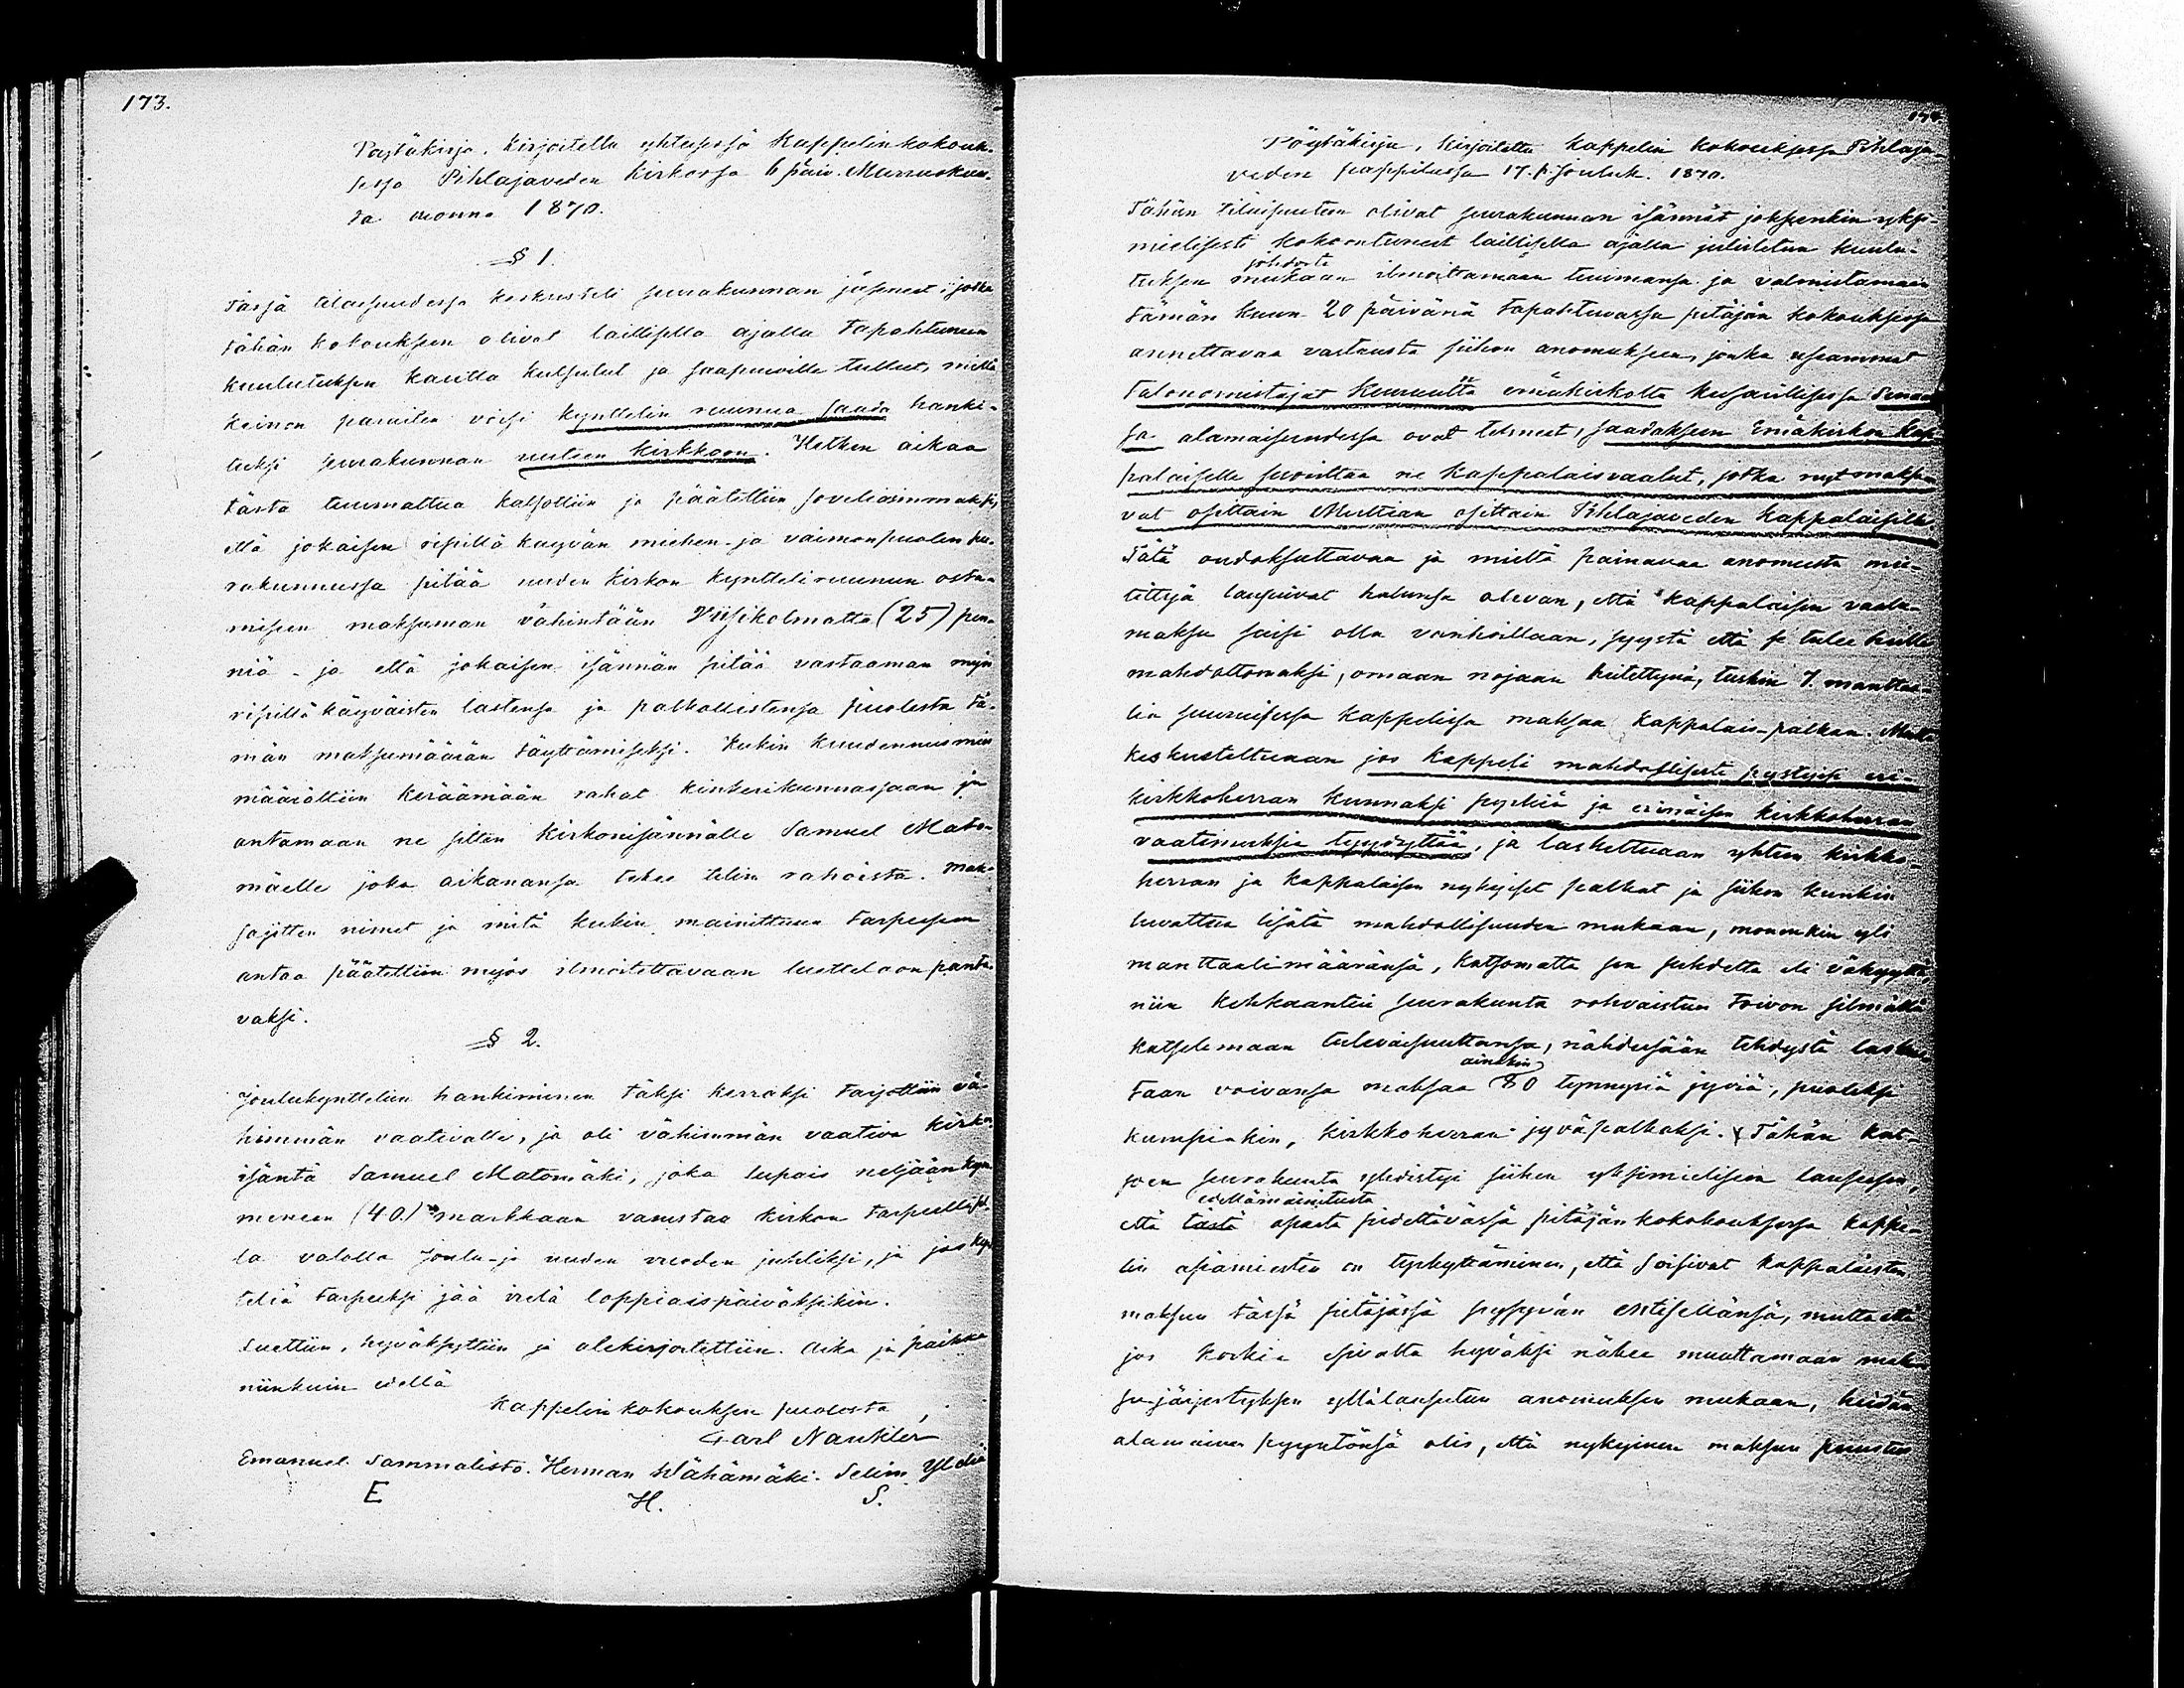 173.
Pöytäkirja, kirjoitettu yhteisessä Kappelinkokouk-
sessa Pihlajaveden Kirkossa 6 päiv. Marraskuu-
ta vuonna 1870.
§ 1.
Tässä tilaisuudessa keskusteli seurakunnan jäsenet, jotka
tähän kokouksen olivat laillisella ajalla tapahtuneen
kuulutuksen kautta kutsutut ja saapuville tullut, millä
keinon paraiten voisi kynttelin ruunua saada hanki-
tuksi seurakunnan uuteen Kirkkoon. Hetken aikaa
tästä tuumattua katsottiin ja päätettiin soveliaimmaksi,
että jokaisen ripillä käyvän miehen- ja vaimonpuolen seu-
rakunnassa pitää uuden Kirkon Kyntteliruunun osta-
miseen maksaman vähintään Viisikolmatta (25) pen-
niä - ja että jokaisen isännän pitää vastaaman myös
ripillä käyväisten lastensa ja palkollistensa puolesta tä-
män maksumäärän täyttämiseksi. Kukin Kuudennusmies
määrättiin keräämään rahat kinkerikunnassaan ja
antamaan ne sitten Kirkonisännälle Samuel Mato-
mäelle joka aikanansa tekee tilin rahoista. Mak-
sajitten nimet ja mitä kukin mainittuun tarpeesen
antaa päätettiin myös ilmoitettavaan luetteloon panta-
vaksi.
§ 2.
Joulukynttelien hankiminen täksi kerraksi tarjottiin vä-
himmän vaativalle, ja oli vähimmän vaativa Kirkon
isäntä Samuel Matomäki, joka lupais neljäänkym-
meneen (40.) markkaan varustaa kirkon tarpeellisel-
la valolla Joulu- ja uuden vuoden juhliksi, ja jos kyn
teliä tarpeeksi jää vielä loppiaispäiväksikin.
Luettiin, hyväksyttiin ja alekirjoitettiin. Aika ja paikka
niinkuin edellä
Kappelin kokouksen puolesta,
Carl Nankler
Emanuel Sammalisto. Herman Wähämäki. Selim Yldiä
E H. S.
174
Pöytäkirja, kirjoitettu Kappelin kokouksessa Pihlaja-
veden pappilassa 17. p. Jouluk. 1870.
Tähän tilaisuuteen olivat seurakunnan isännät jokseenkin yksi-
mielisesti kokoontuneet laillisella ajalla julistetun kuulu-
tuksen johdosta mukaan ilmoittamaan tuumansa ja valmistamaan
tämän kuun 20 päivänä tapahtuvassa pitäjän kokouksessa
annettavaa vastausta siihen anomukseen, jonka useammat
talonomistajat Keuruulta emäkirkolta keisarillisessa Senaa
sa alamaisuudessa ovat tehneet, saadakseen Emäkirkon kap-
palaiselle suorittaa ne kappalaisvaalit, jotka nyt maksa-
vat osittain Multian osittain Pihlajaveden kappalaisille.
Tätä oudoksuttavaa ja mieltä painavaa anomusta mie-
tittyä lausuivat halunsa olevan, että kappalaisen vaalu-
maksu saisi olla vanhoillaan, syystä että se tulee heille
mahdottomaksi, omaan nojaan heitettynä, tuskin 7. manttaa-
lin suuruisessa kappelissa maksaa kappalais-palkan. Mutta
keskusteltuaan jos kappeli mahdollisesti pystyisi eri-
kirkkoherran kunnaksi pyrkiä ja erinäisen kirkkoherran
vaatimuksia tyydyttää, ja laskettuaan yhteen kirkko-
herran ja kappalaisen nykyiset palkat ja siihen kunkin
luvattua lisätä mahdollisuuden mukaan, monenkin yli
manttaalimääränsä, katsomatta sen suhdetta eli vähyyttä,
niin kehkaantui seurakunta rohvaistun toivon silmällä
katselemaan tulevaisuuttansa, nähdessään tehdystä laskus-
taan voivansa maksaa ainakin 80 tynnyriä jyviä, puoleksi
kumpiakin, kirkkoherran jyväpalkaksi. Tähän kat-
soen seurakunta yhdistyi siihen yksimieliseen lauseesen,
että tästä edellämainitusta asiasta pidettävässä pitäjän kokokouksessa kappe-
lin asiamiesten on tyrkyttäminen, että soisivat kappalaisten
maksun tässä pitäjässä pysyvän entisellänsä, mutta että
jos korkia esivalta hyväksi näkee muuttamaan mak-
su-järjestyksen ylläilmoitetun anomuksen mukaan, heidän
alamainen pyyntönsä olis, että nykyinen maksun